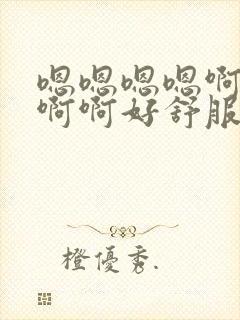 嗯嗯嗯嗯啊
啊啊好舒服
橙優秀.